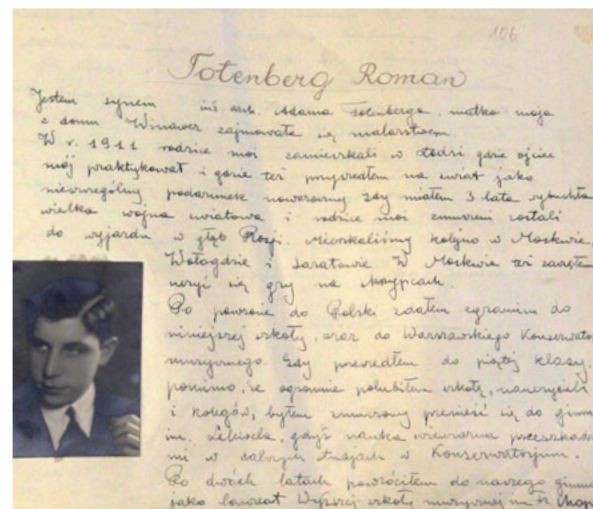 106
Totenberg Roman
Jestem synem inż. arch. Adama Totenberga, matka moja
z domu Winawer zajmowała się malarstwem.
W r. 1911 rodzice moi zamieszkali w Łodzi gdzie ojciec
mój praktykował i gdzie też przyszedłem na świat jako
nieszczególny podarunek noworoczny. Gdy miałem 3 lata wybuchła
wielka wojna światowa i rodzice moi zmuszeni zostali
do wyjazdu w głąb Rosji. Mieszkaliśmy kolejno w Moskwie,
Wołogdzie i Saratowie. W Moskwie zaś zacząłem
uczyć się gry na skrzypcach.
Po powrocie do Polski zdałem egzamin do
niniejszej szkoły, oraz do Warszawskiego Konserwator
muzycznego. Gdy przeszedłem do piątej klasy,
pomimo, że ogromnie polubiłem szkołę, nauczycieli
i kolegów, byłem zmuszony przenieść się do gimn
im. Lelewela, gdyż nauka wieczorna przeszkadz
mi w dalszych studjach w Konserwatorjum.
Po dwóch latach powróciłem do naszego gimna
jako laureat Wyższej szkoły muzycznej im. Fr. Chop